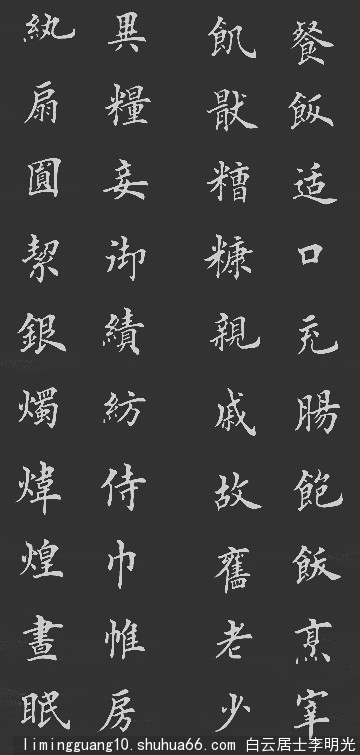 餐飯适口充腸飽飫烹宰
飢猒糟糠親戚故舊老少
異糧妾御績紡侍巾帷房
紈扇圓絜銀燭煒煌晝眠
limingguang10.shuhua66.com 白云居士李明光